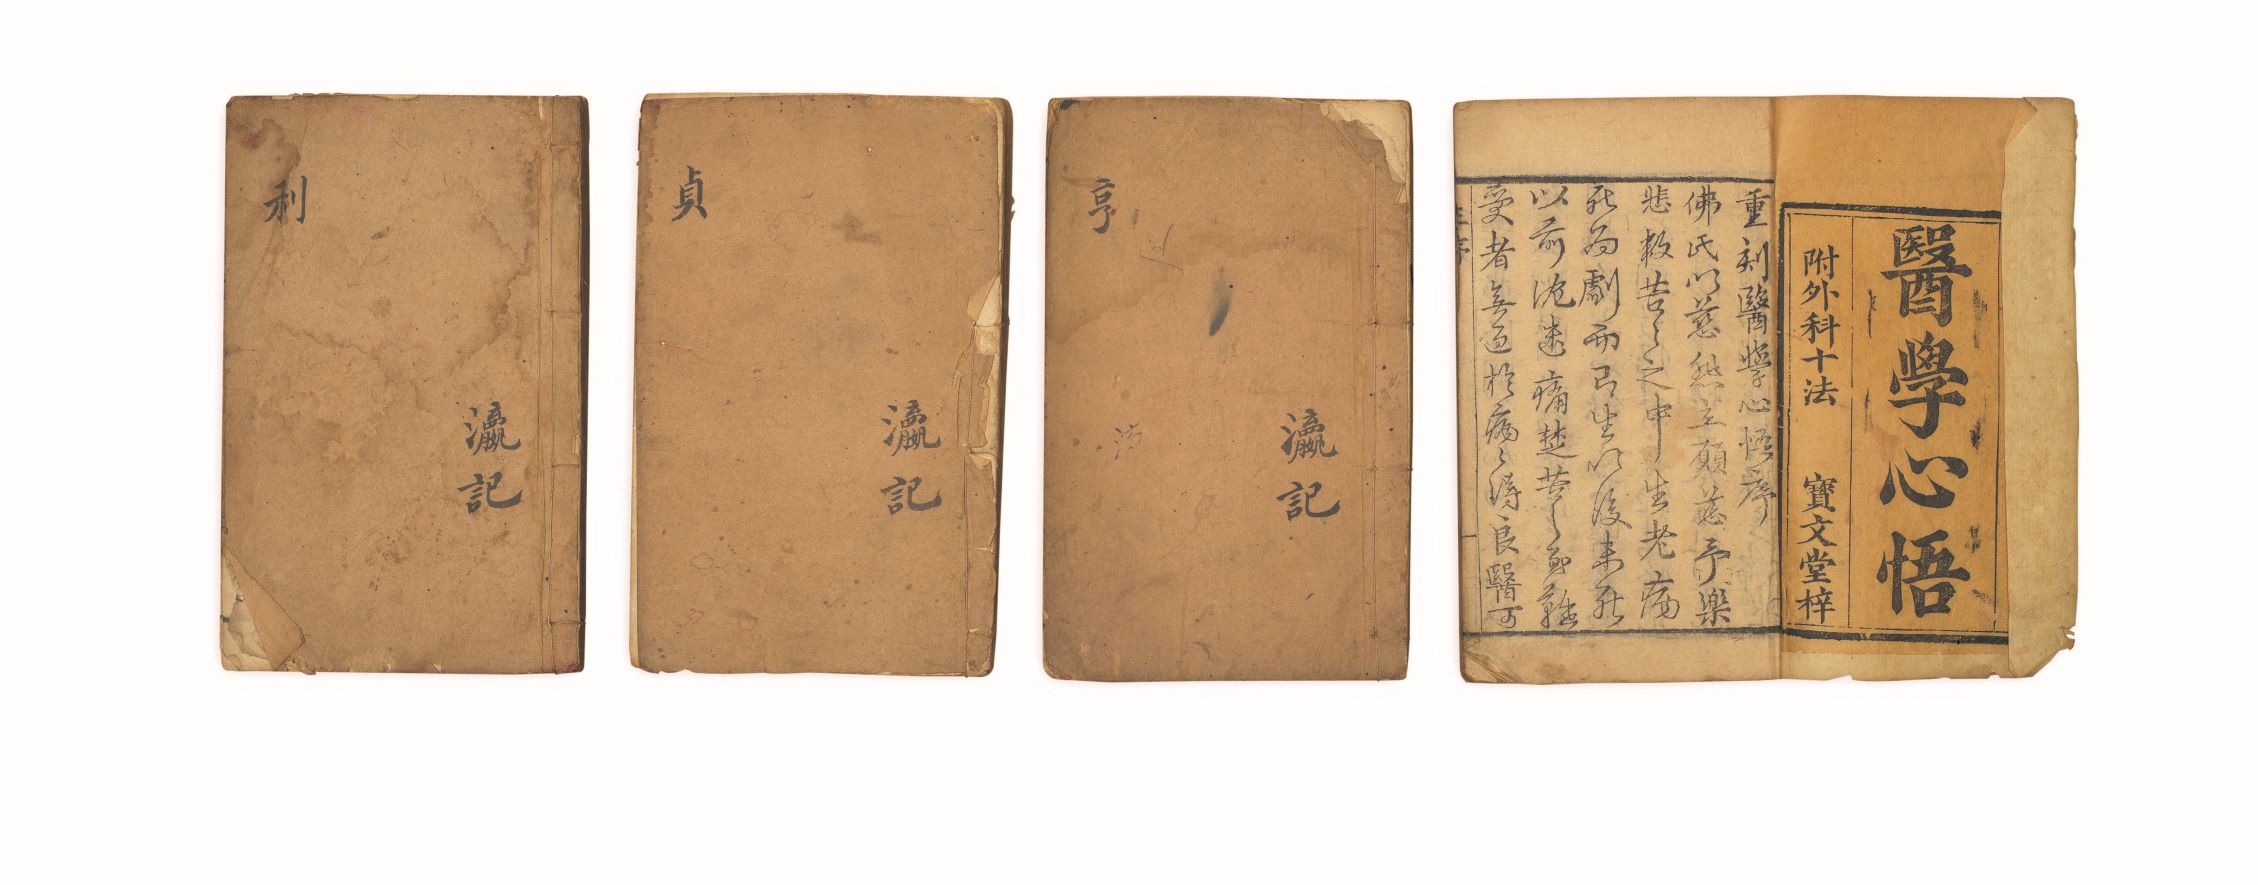 醫學心悟
附外科十法
寶文堂梓
重刻醫學心悟序
佛氏以慈悲立願慈予樂
悲救苦苦之中生老病
死為劇而已生以後未死
以前沈迷痛楚苦之至難
受者無過於病病得良醫可
亨
瀛記
貞
瀛記
利
瀛記